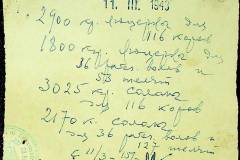 11. III. 1943
2900 кг. люцерна для
116 коров
1800 кг. люцерна для
36 рабоч. волов и
53 телят
3025 кг. солома
для 116 коров
2170 кг. солома
для 36 рабоч. волов и
127 телят
с 11/3 - 15/3